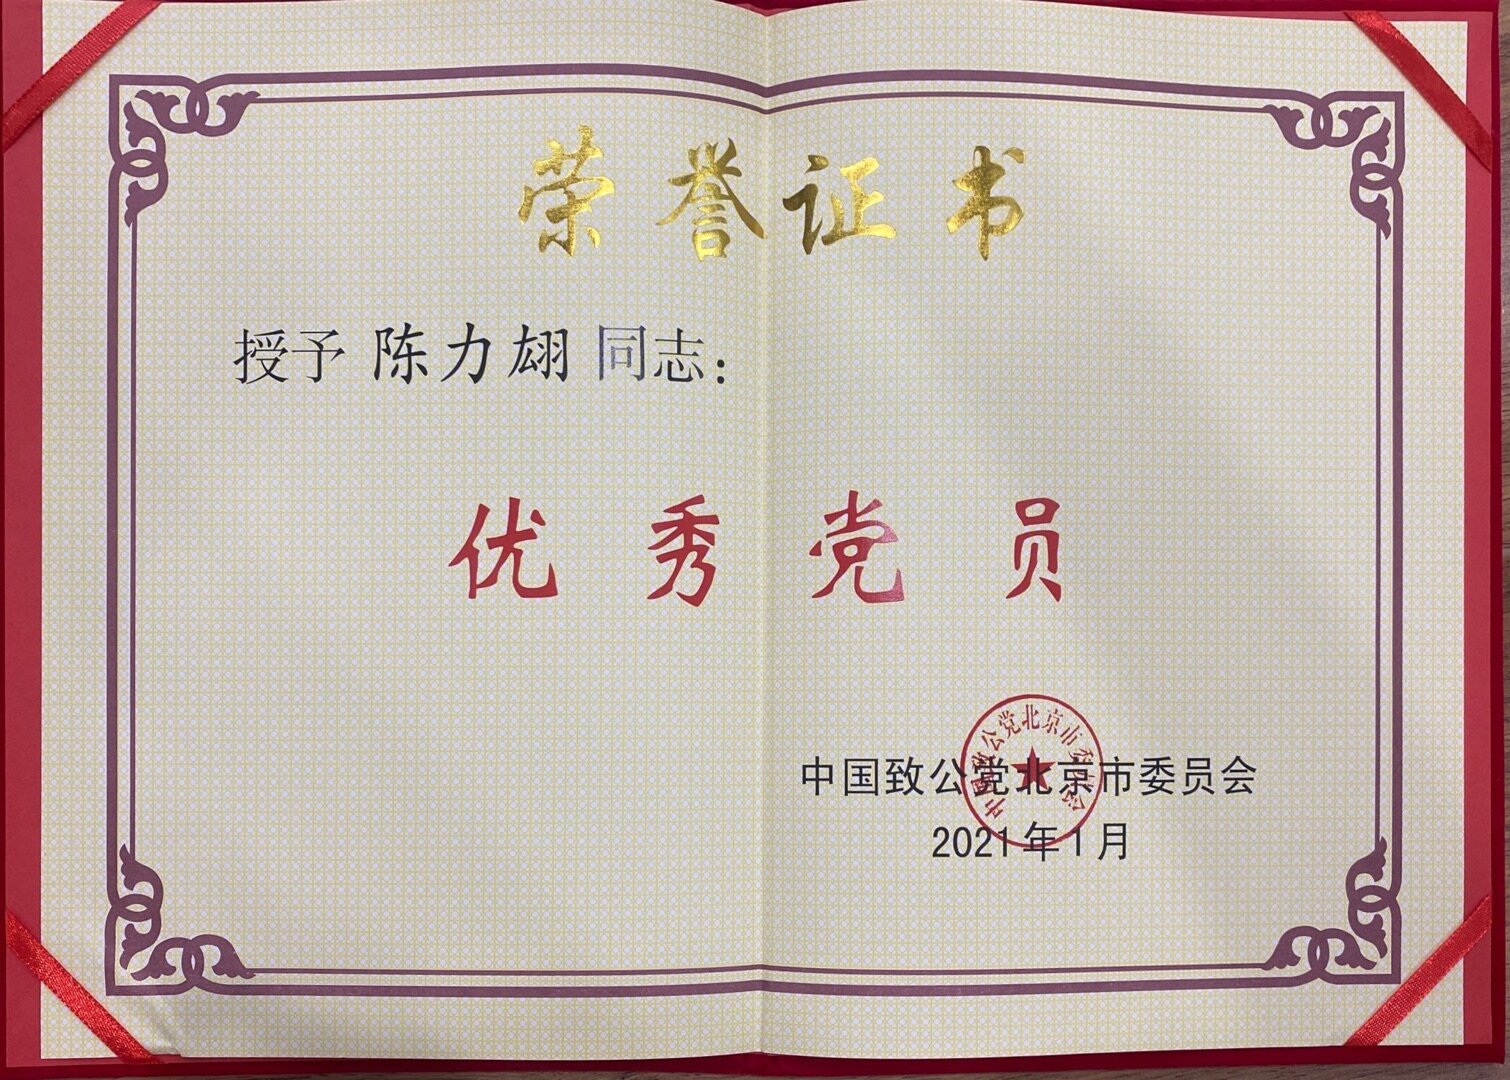 荣誉证书
授予 陈力翃 同志：
优秀党员
中国致公党北京市委员会
2021年1月
中国致公党北京市委员会